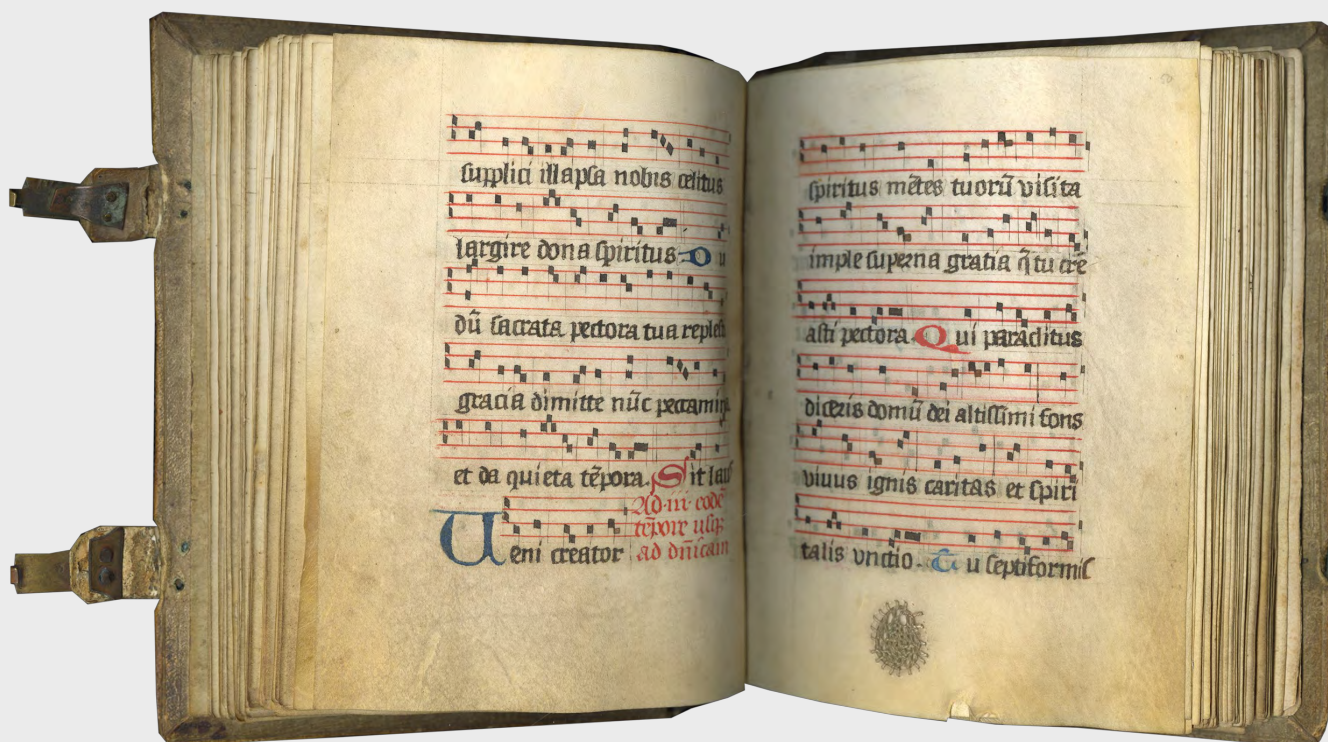 supplici illapsa nobis celitus
largire dona spiritus Du
dū sacrata pectora tua
gracia dimitte nūc
et da quieta tēpora. Sit
Ad iii eodē
tēpore usq̄
Ueni creator ad dn̄icam
spiritus mētes tuorū visita
imple superna gratia q̄ tu cre
asti pectora. Qui paraclitus
diceris domū dei altissimi fons
vivus ignis caritas et spiri
talis vnctio. Tu septiformis